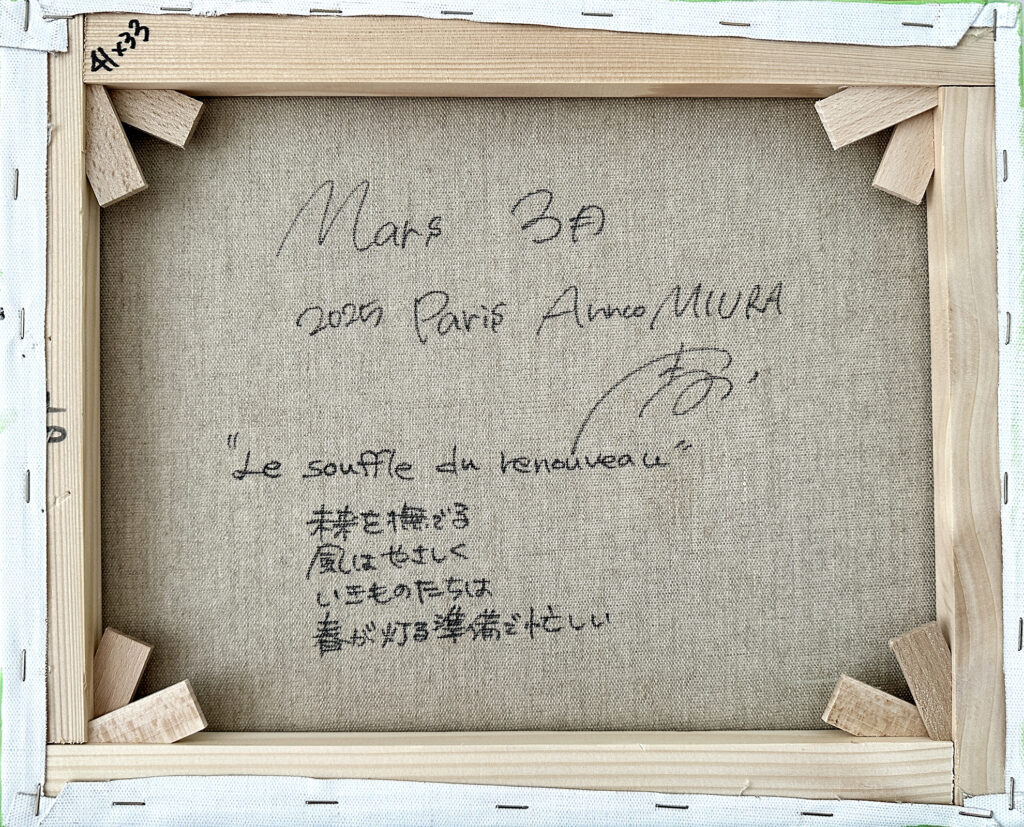 41x33
Mars 3月
2025 Paris Annco MIURA
"Le souffle du renouveau"
未来を撫でる
風はやさしく
いきものたちは
春が灯る準備で忙しい